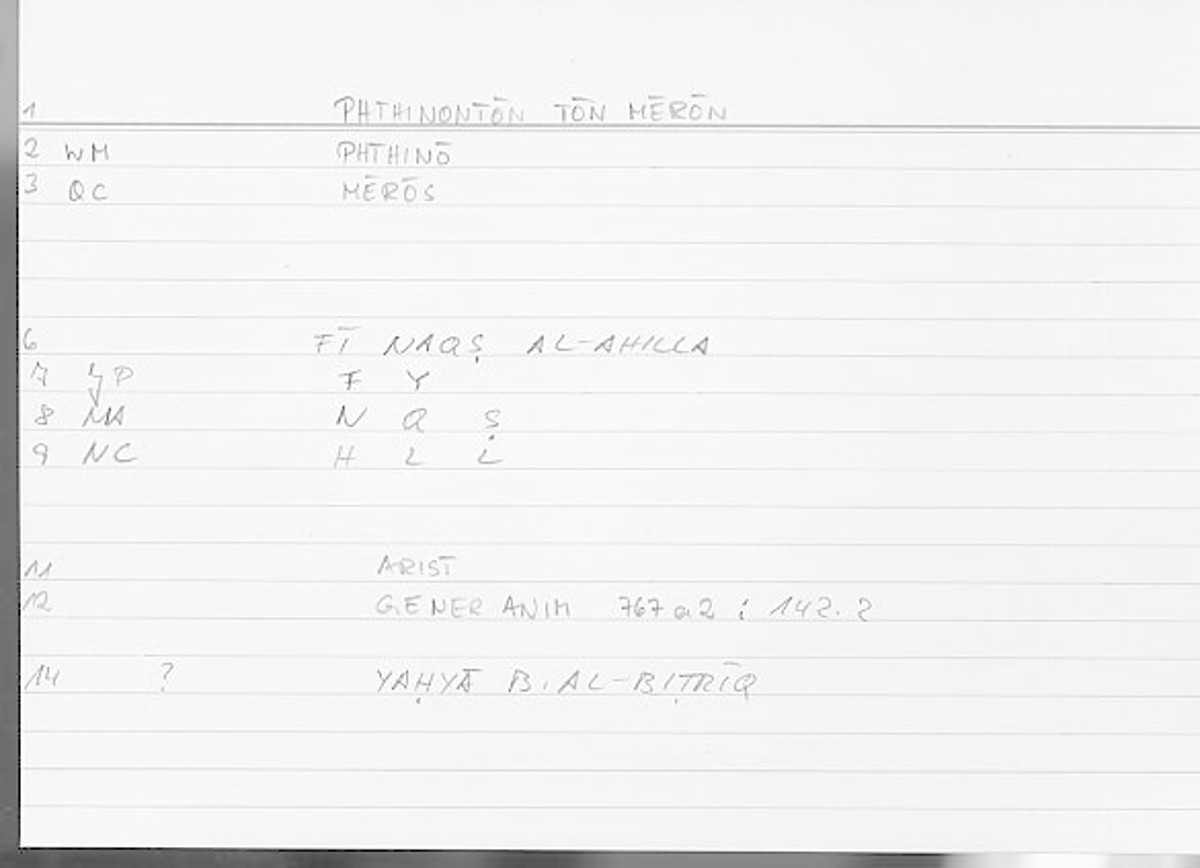 1 PHTHINONTŌN TŌN MĒRŌN
2 WM PHTHINŌ
3 QC MĒRŌS
6 FĪ NAQṢ AL-AHILLA
7 P F Y
8 NA N Q Ṣ
9 NC H L L
11 ARIST
12 GENER ANIM 767 a 2 ; 142. 2
14 ? YAḤYĀ B. AL-BIṬRĪQ